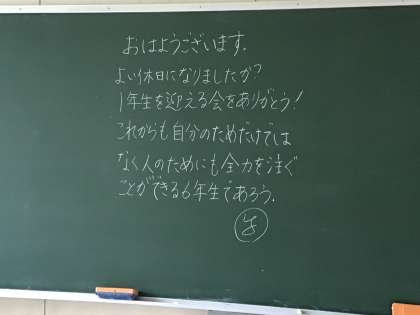 おはようございます。
よい休日になりましたか?
1年生を迎える会をありがとう!
これからも自分のためだけでは
なく人のためにも全力を注ぐ
ことができる6年生であろう。